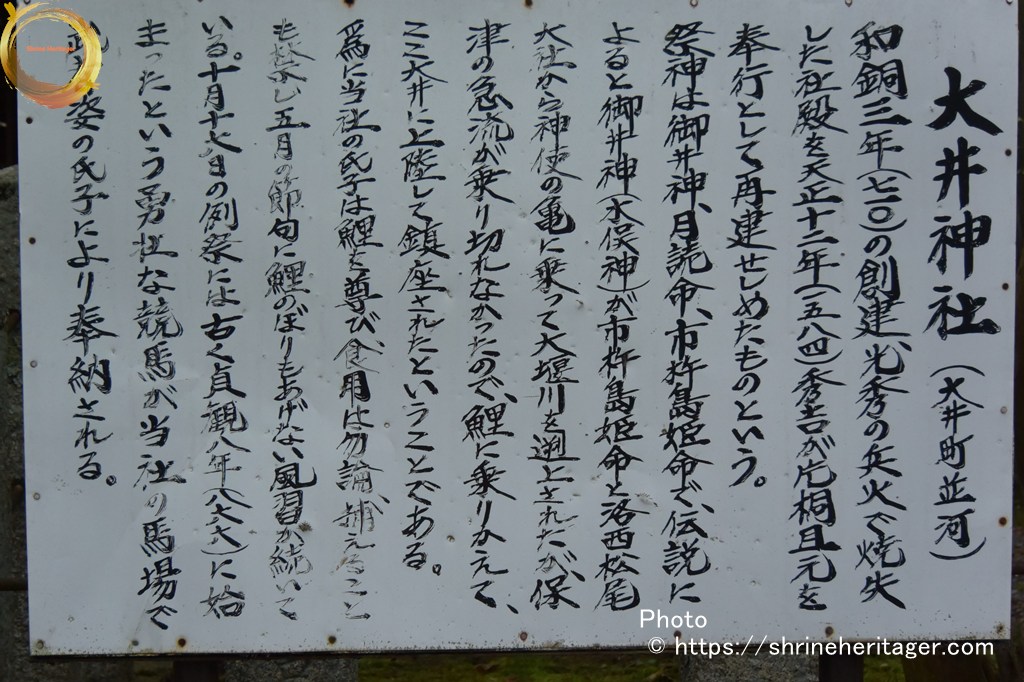 大井神社（大井町並河）
和銅三年（七一〇）の創建、光秀の兵火で焼失
した社殿を天正十二年（一五八四）秀吉が片桐且元を
奉行として再建せしめたものという。
祭神は御井神、月読命、市杵島姫命で、伝説に
よると御井神（木俣神）が市杵島姫命と洛西松尾
大社から神使の亀に乗って大堰川を遡上されたが、保
津の急流が乗り切れなかったので、鯉に乗りかえて、
ここ大井に上陸して鎮座されたということである。
爲に当社の氏子は鯉を尊び、食用は勿論、捕えること
も禁じ五月の節句に鯉のぼりもあげない風習が続いて
いる。十月十七日の例祭には古く貞観八年（八六六）に始
まったという勇壮な競馬が当社の馬場で
姿の氏子により奉納される。
Photo
© https://shrineheritager.com